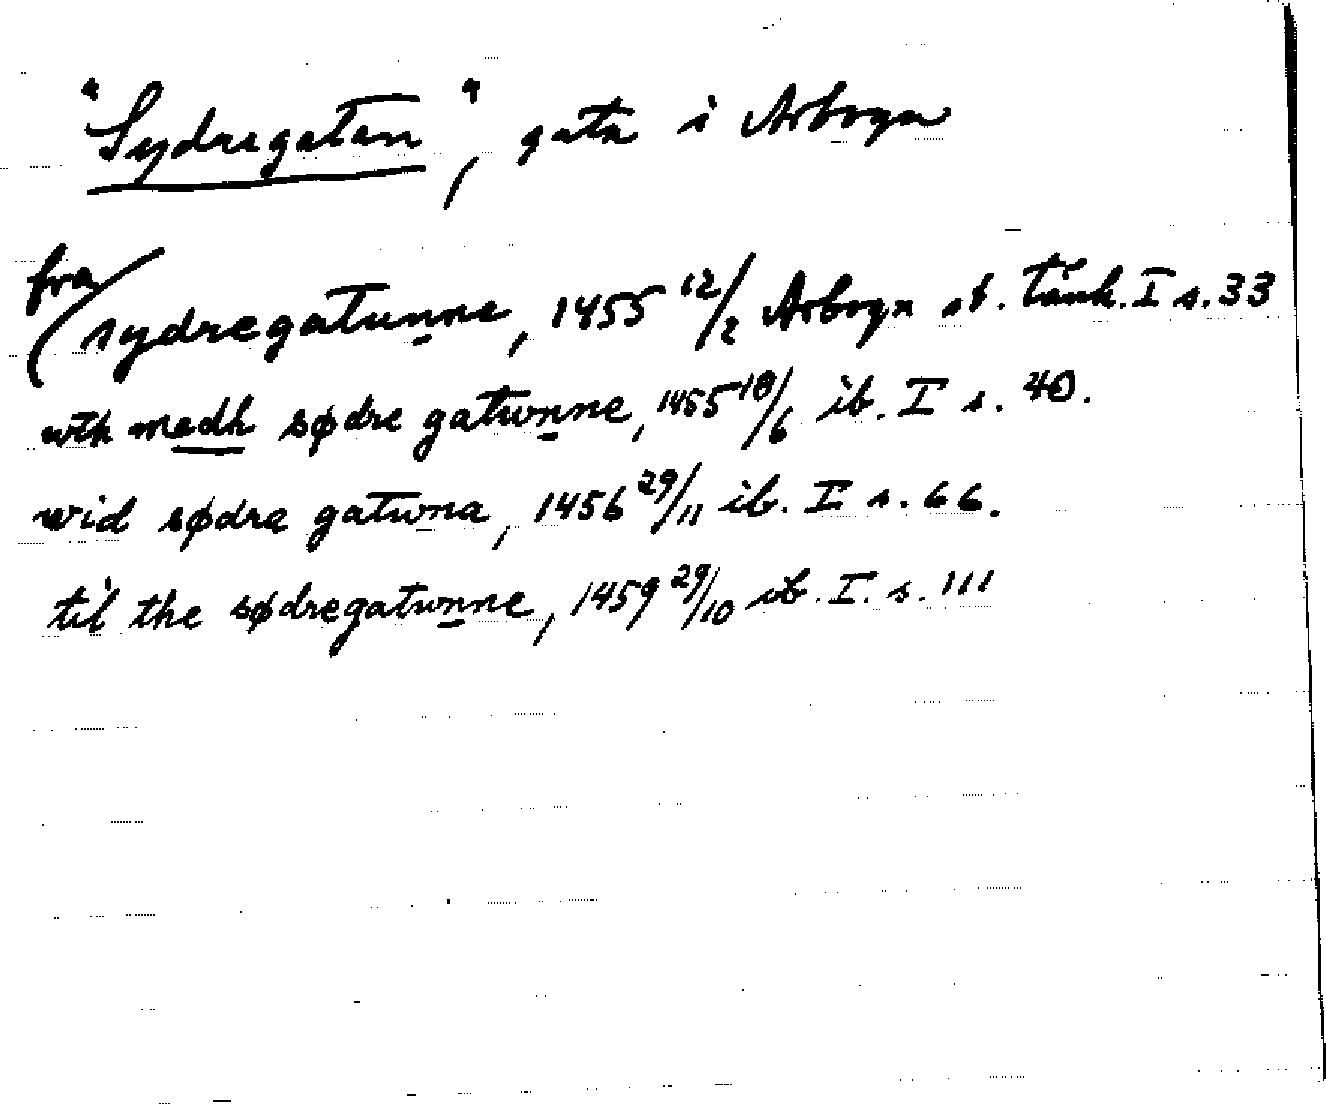 "Sydregatan", gata i Arboga
fra sydregatunne, 1455 12/2 Arboga st. tänk. I s. 33
wth medh sødre gatunne, 1455 18/6 ib. I s. 40.
wid sødra gatuna, 1456 29/11 ib. I s. 66.
til the sødregatunne, 1459 29/10 ib. I. s. 111